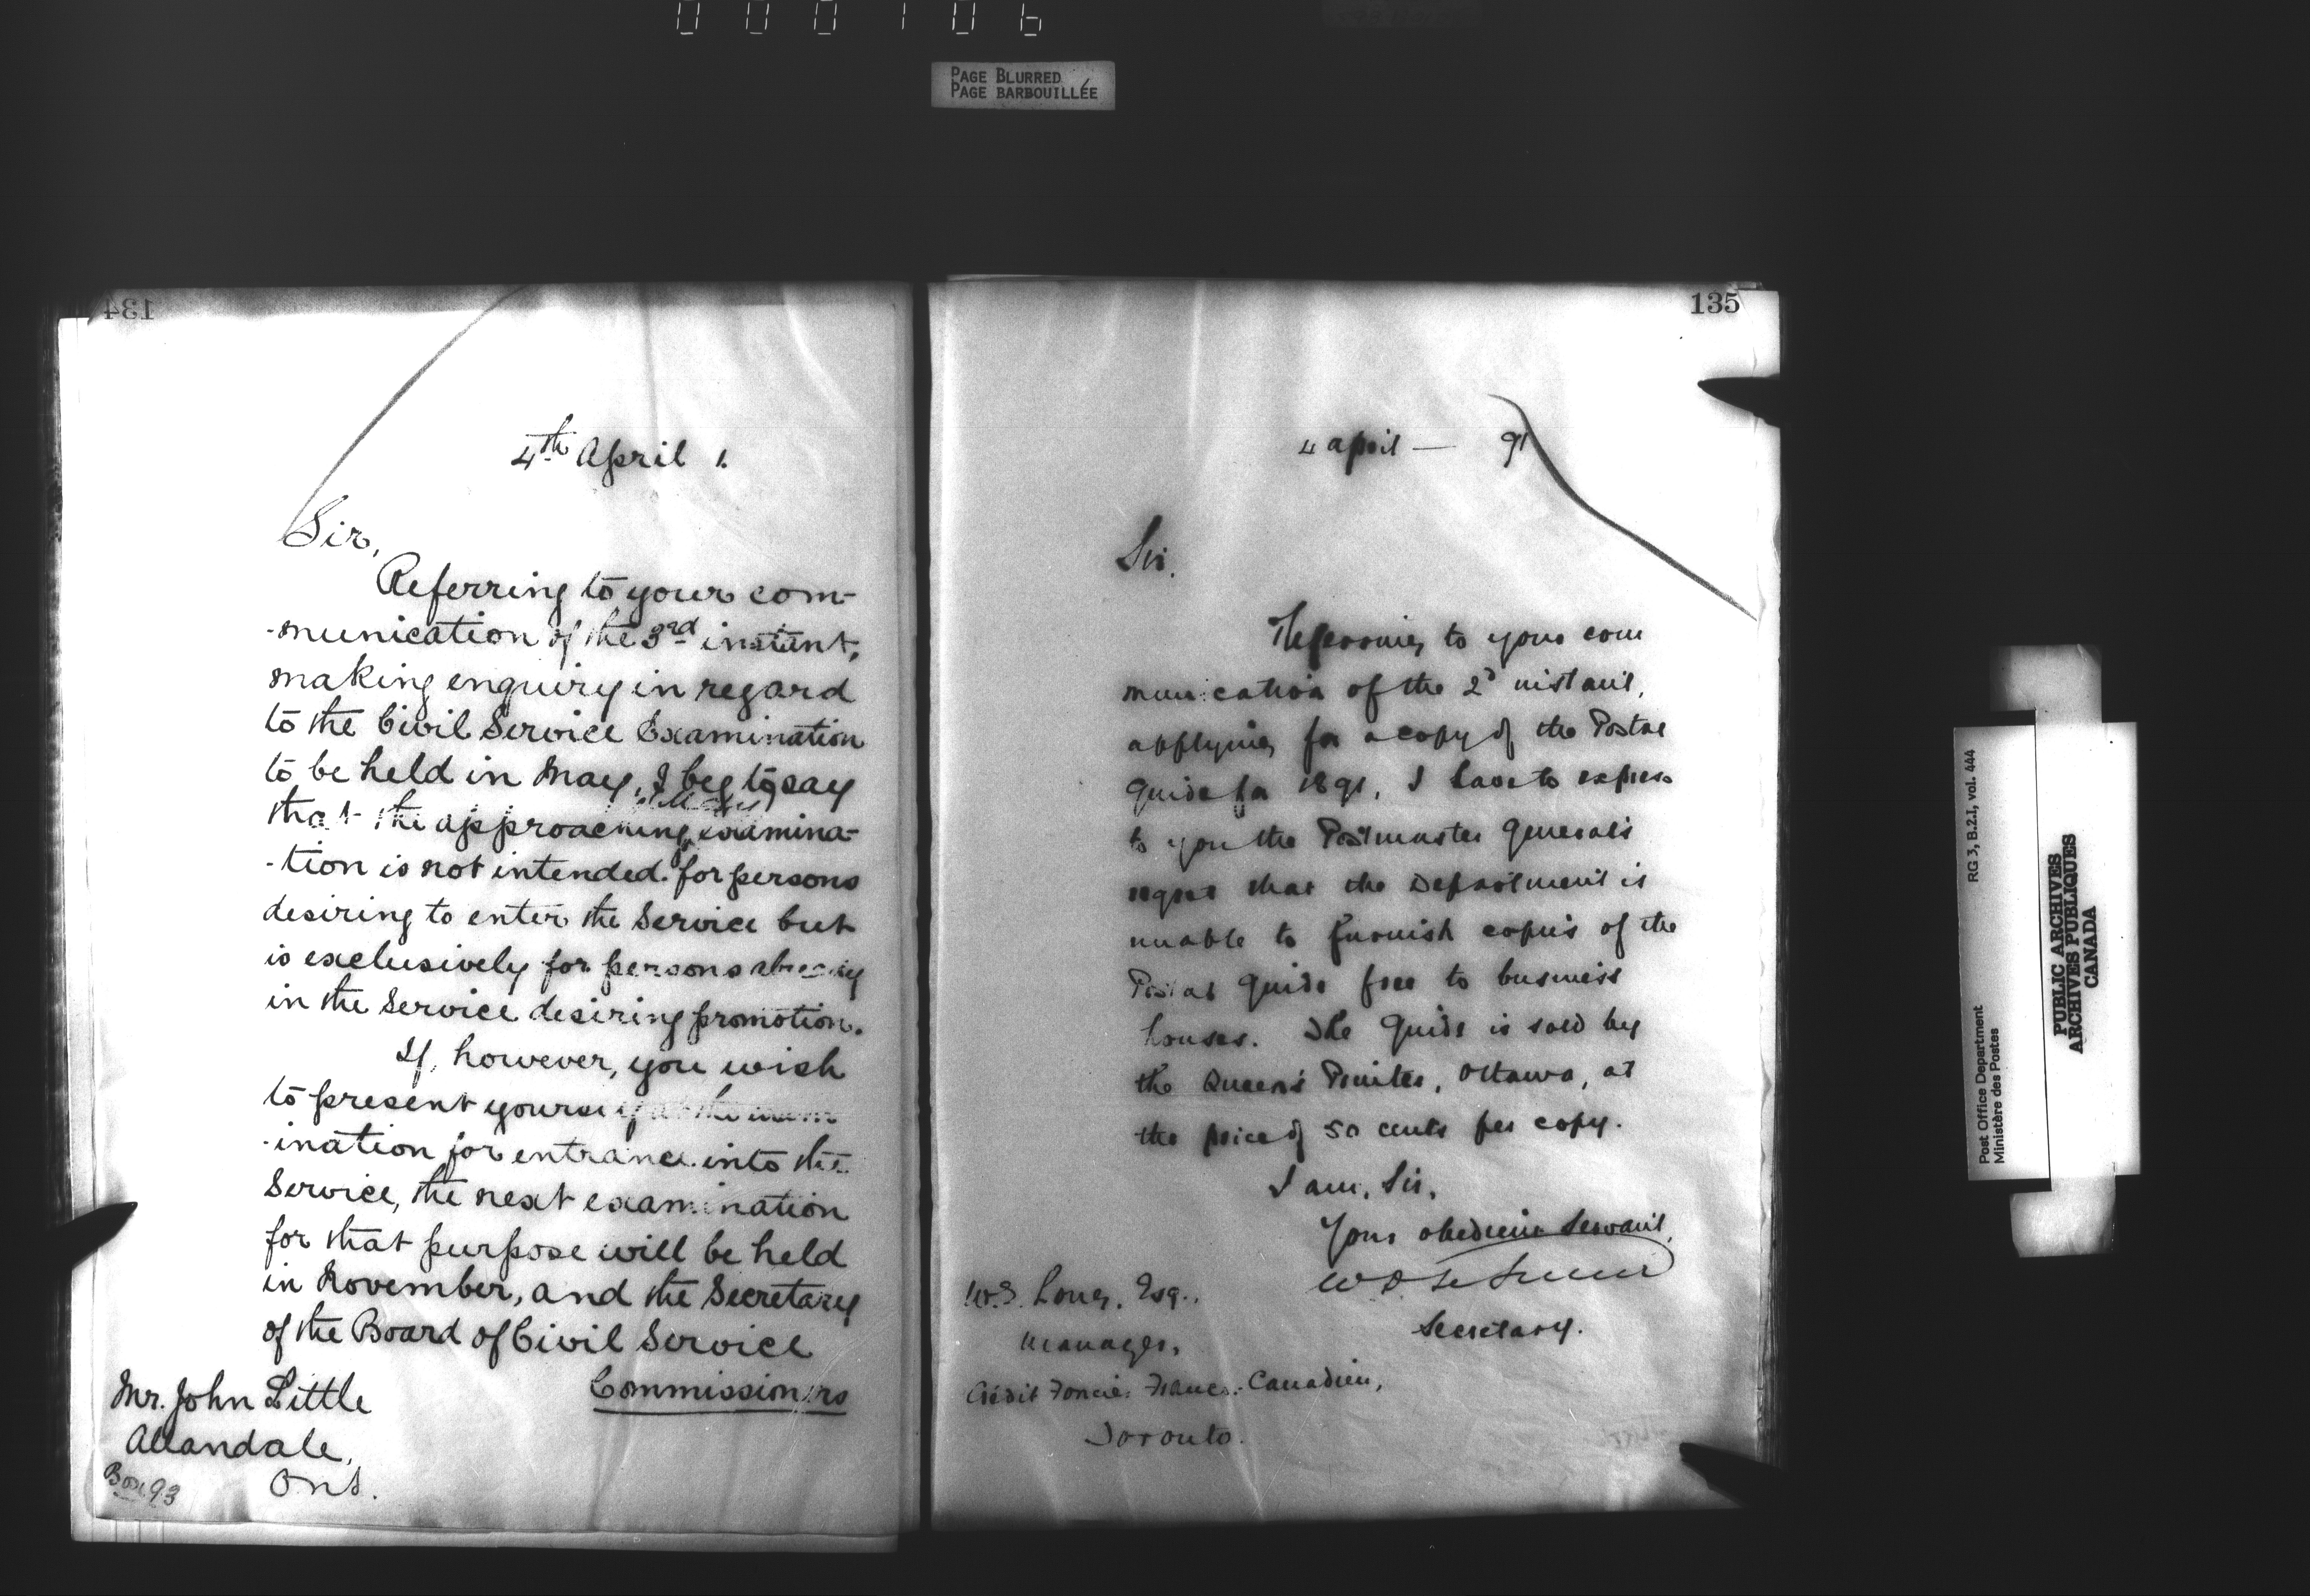 000106
PAGE BLURRED
PAGE BARBOUILLÉE
134
4th April 1.
Sir,
Referring to your com-
-munication of the 3rd instant,
making enquiry in regard
to the Civil Service Examination
to be held in May, I beg to say
(May)
that the approaching examina-
-tion is not intended for persons
desiring to enter the Service but
is exclusively for persons already
in the Service desiring promotion.
If, however, you wish
to present yourself at the exam
-ination for entrance into the
Service, the next examination
for that purpose will be held
in November, and the Secretary
of the Board of Civil Service
Commissioners
Mr. John Little
Allandale,
Ont.
Box 93
135
4 April — 91
Sir.
Referring to your com
munication of the 2d instant,
applying for a copy of the Postal
Guide for 1891, I have to express
to you the Postmaster General's
regret that the Department is
unable to furnish copies of the
Postal Guide free to business
houses. The Guide is sold by
the Queen's Printer, Ottawa, at
the price of 50 cents per copy.
I am, Sir,
Your obedient Servant,
Secretary.
Long, Esq.,
Manager,
Crédit Foncier Franco-Canadien,
Toronto.
Post Office Department
Ministère des Postes
RG 3, B.2.I, vol. 444
PUBLIC ARCHIVES
ARCHIVES PUBLIQUES
CANADA